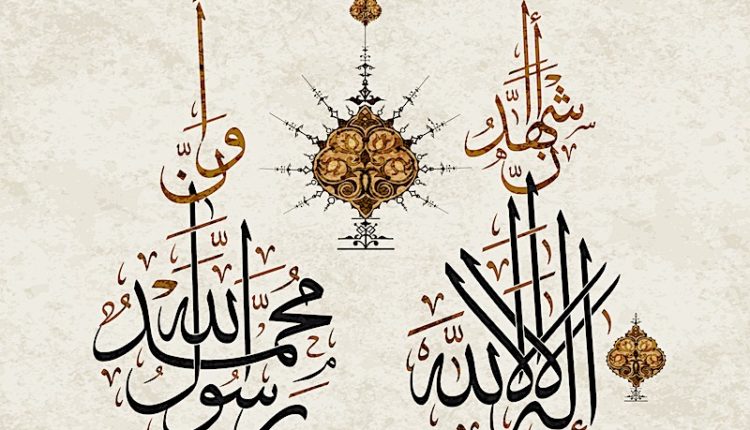 أشهد أن
لا إله إلا الله
وأن
محمدا رسول الله